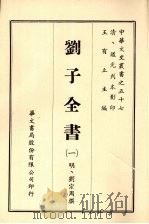 中華文史叢書之五十七
清、道光刊本影印
王有立主編
劉子全書
(一)明、劉宗周撰
華文書局股份有限公司印行